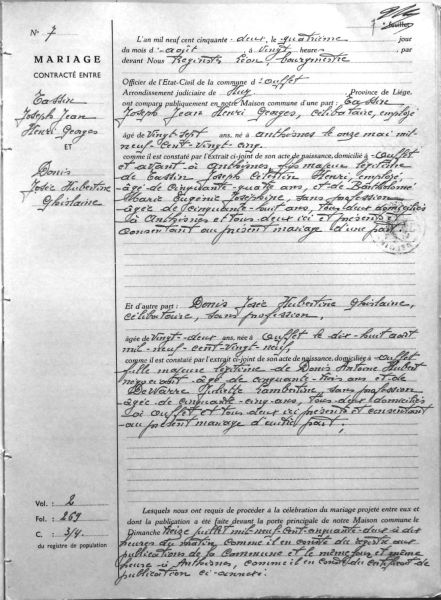 N° 7
MARIAGE
CONTRACTÉ ENTRE
Tassin
Joseph Jean
Henri Georges
ET
Donis
Josée Hubertine
Ghislaine
Vol. : 2
Fol. : 269
C. : 3/4
du registre de population
feuillet
L'an mil neuf cent cinquante-deux, le quatrième jour
du mois d'août à vingt heures, par
devant Nous Léon, bourgmestre
Officier de l'Etat-Civil de la commune d'Ouffet
Arrondissement judiciaire de Huy Province de Liége,
ont comparu publiquement en notre Maison commune d'une part : Tassin
Joseph Jean Henri Georges, célibataire, employé,
âgé de vingt-sept ans, né à Anthisnes le onze mai mil-
neuf-cent-vingt-cinq,
comme il est constaté par l'extrait ci-joint de son acte de naissance, domicilié à Ouffet
et avant à Anthisnes, fils majeur légitime
de Tassin Joseph Célestin Henri, employé,
âgé de cinquante-quatre ans, et de
Marie Eugénie Joséphine, sans profession
âgée de cinquante-huit ans, tous deux domiciliés
à Anthisnes et tous deux ici et présents et
consentant au présent mariage d'une part,
Et d'autre part : Donis Josée Hubertine Ghislaine,
célibataire, sans profession,
âgée de vingt-deux ans, née à Ouffet le dix-huit août
mil-neuf-cent-vingt-neuf,
comme il est constaté par l'extrait ci-joint de son acte de naissance, domiciliée à Ouffet
fille majeure légitime de Donis Antoine Hubert
négociant âgé de cinquante-trois ans et de
Dewarre Juliette Lambertine, sans profession
âgée de cinquante-cinq-ans, tous deux domiciliés
à Ouffet, et tous deux ici présents et consentant
au présent mariage d'autre part ;
Lesquels nous ont requis de procéder à la célébration du mariage projeté entre eux et
dont la publication a été faite devant la porte principale de notre Maison commune le
Dimanche treize juillet mil-neuf-cent-cinquante-deux à dix
heures du matin comme il en conste du registre aux
publications de la Commune et le même jour et même
heure à Anthisnes, comme il en conste du certificat de
publication ci-annexé.